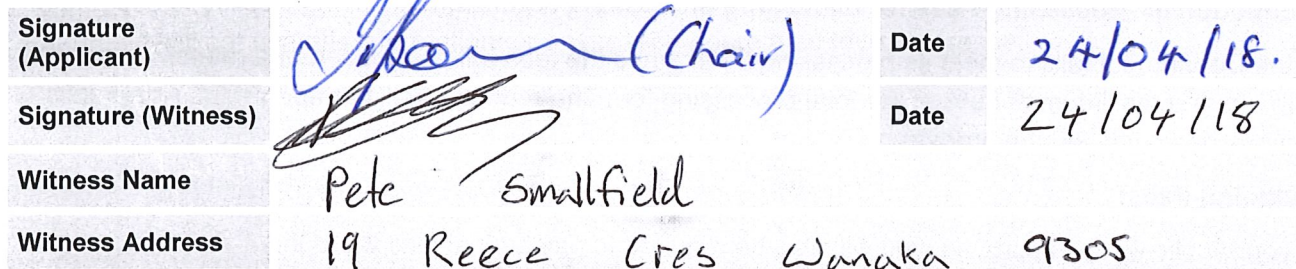 Signature
(Applicant) (Chair) Date 24/04/18.
Signature (Witness) Date 24/04/18
Witness Name Pete Smallfield
Witness Address 19 Reece Cres Wanaka 9305